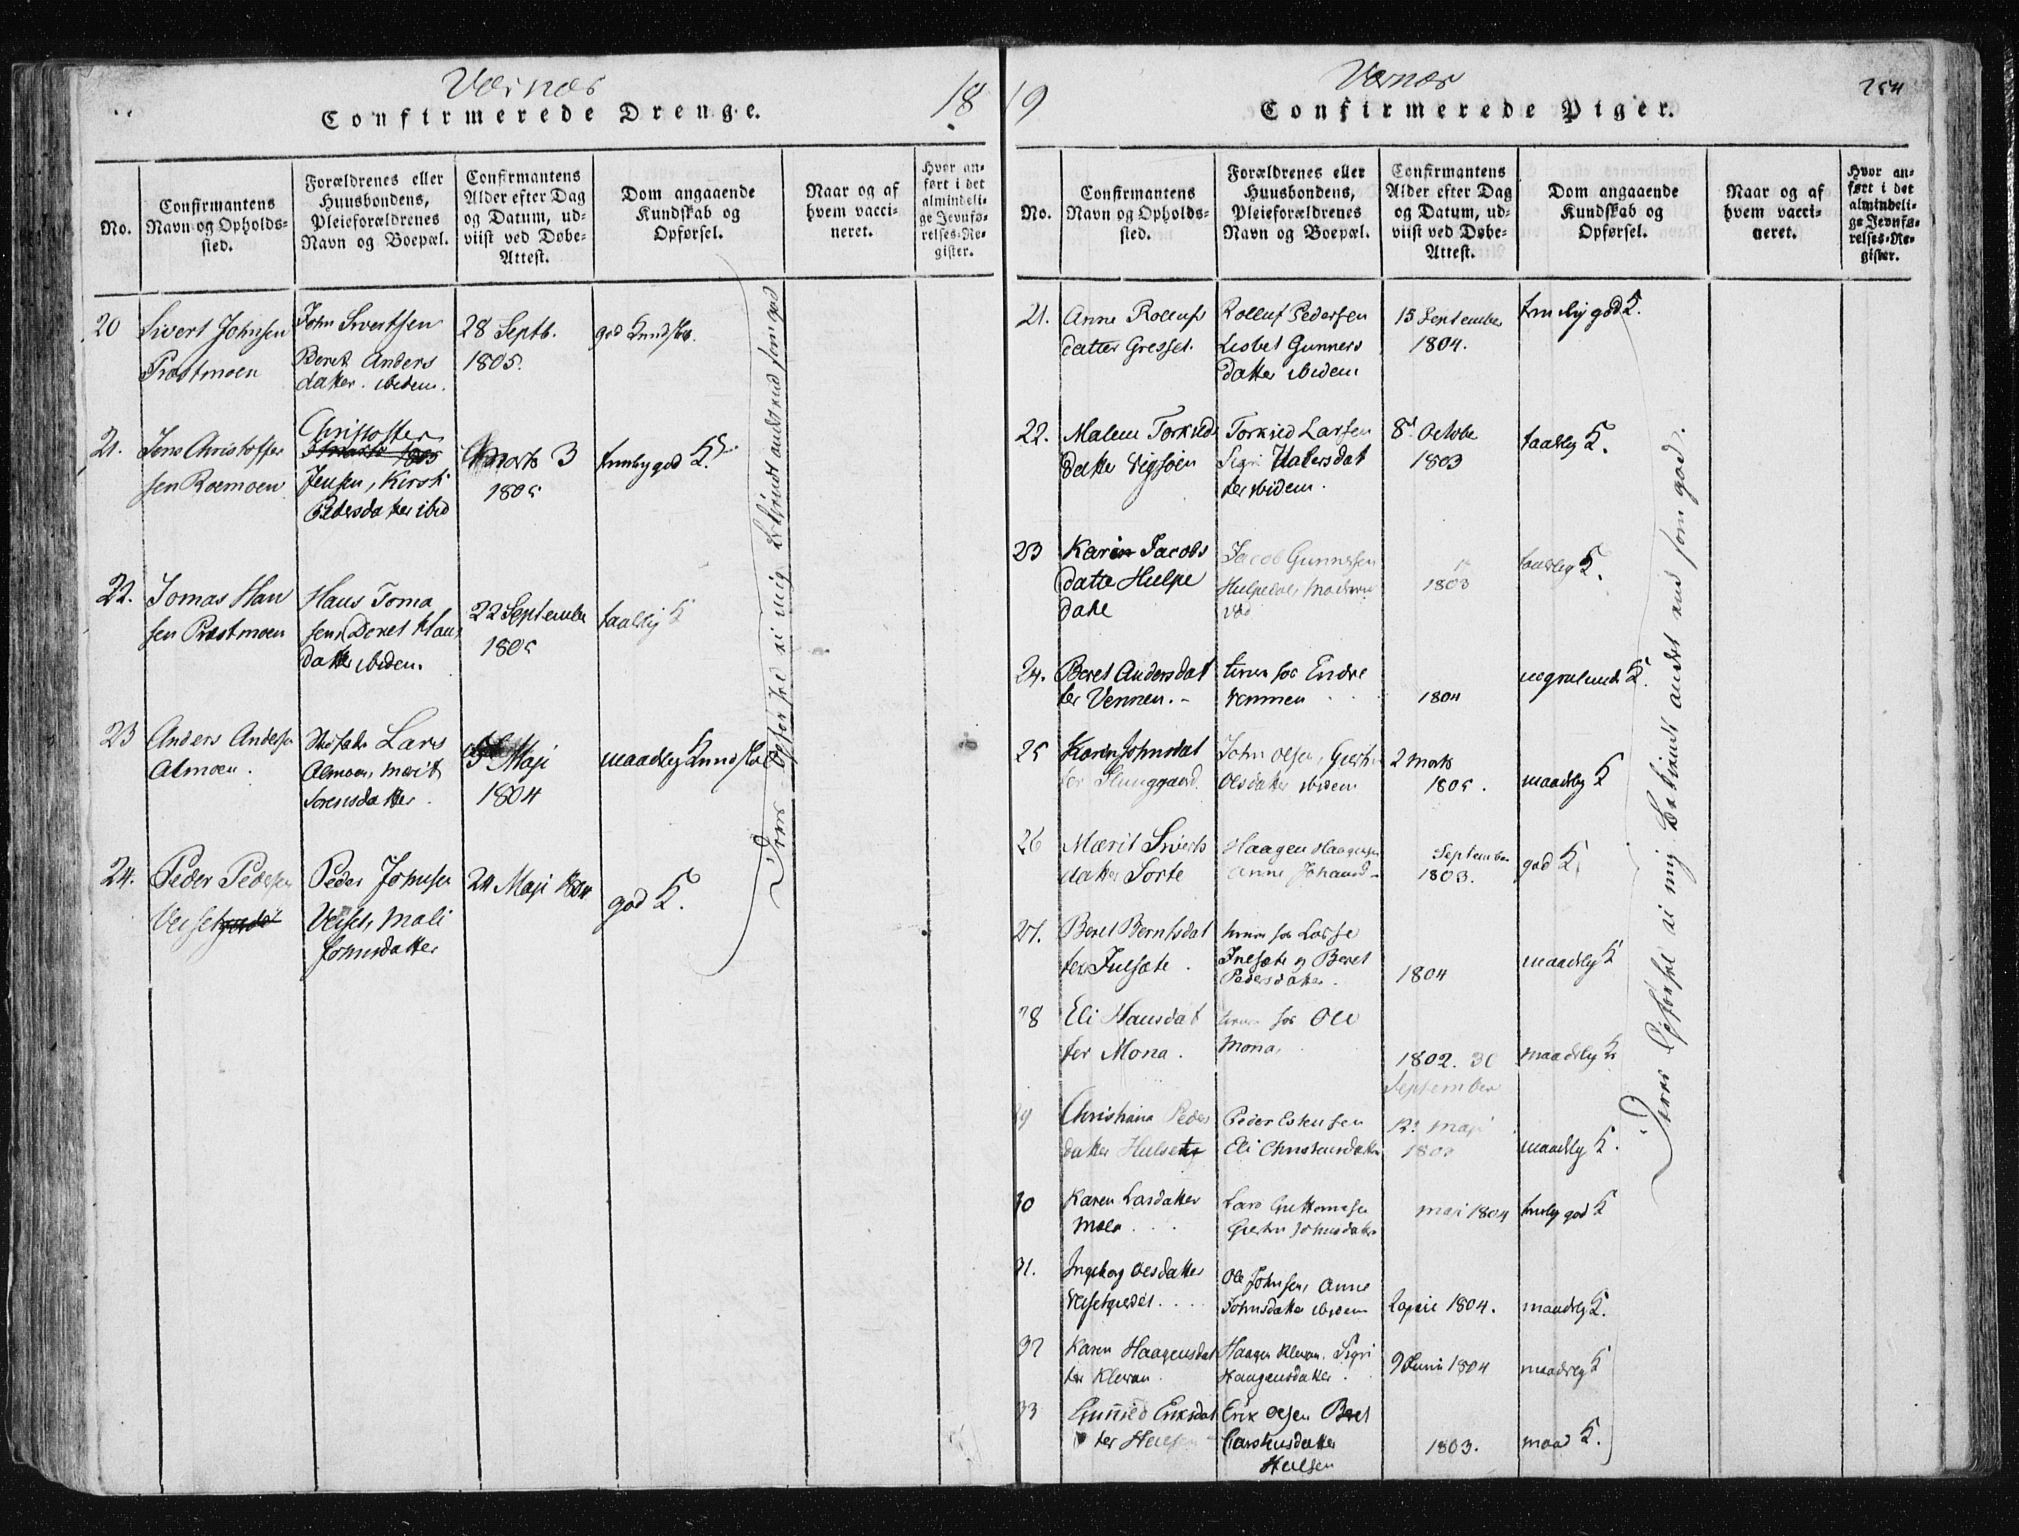 Værnes
Confirmerede Drenge.
18
No.
Confirmantens
Navn og Opholds-
sted.
Forældrenes eller
Huusbondens,
Pleieforældrenes
Navn og Boepæl.
Confirmantens
Alder efter Dag
og Datum, ud-
viist ved Døbe-
Attest.
Dom angaaende
Kundskab og
Opførsel.
Naar og af
hvem vacci-
neret.
Hvor an-
ført i det
almindeli-
ge Jevnfø-
relses-Re-
gister.
20
Sivert Johnsen
Præstmoen
John Sivertsen
Beret Anders
datter ibidem.
28 Septb.
1805.
god Kundskb.
21.
Jens Christoffer
sen Roemoen
Christoffer
Jensen, Kirsti
Pedersdatter ibid
Marts 3
1805
temlig god K.
22.
Tomas Han
sen Præstmoen
Hans Toma
sen, Beret Hans
datter ibidem.
22 September
1805
taallig K
23
Anders Anderse
Almoen.
Lars
Almoen, Marit
Sørensdatter.
5 Maji
1804
maadelig Kundskab
24.
Peder Pedersen
Veiset
Peder Johnsen
Veiset, Mali
Johnsdatter
24 Maji 1804
god K.
Deres Opførsel ei mig bekjendt andet end som god
19
Værnes
Confirmerede Piger.
254
No.
Confirmantens
Navn og Opholds-
sted.
Forældrenes eller
Huusbondens,
Pleieforældrenes
Navn og Boepæl.
Confirmantens
Alder efter Dag
og Datum, ud-
viist ved Døbe-
Attest.
Dom angaaende
Kundskab og
Opførsel.
Naar og af
hvem vacci-
neret.
Hvor an-
ført i det
almindeli-
ge Jevnfø-
relses-Re-
gister.
21.
Anne Rollufs
datter Gresset.
Rolluf Pedersen
Lisbet Gunners
datter ibidem
15 September
1804.
temelig god K.
22.
Malene Torkilds
datter Vigsøen
Torkild Larsen
Sigri Halversdat
ter ibidem.
8d October
1803
taalelig K.
23
Karen Jacobs
datter Hulpe
dale
Jacob Gunnersen
Hulpedal, Moderen
død
1803
taalelig K.
24.
Beret Andersdat
ter Vennen.-
tiener hos Endre
Vennen
1804
K.
25
Karen Johnsdat
ter
John Olsen, Giertr
Olsdatter ibidem
2 Marts
1805.
maadelig K
26
Marit Siverts
datter Sorte
Haagen Haagensen
Anne Johansd-
September
1803.
god K.
27.
Beret Berntsdat
ter Julsæte.
tiener hos Lasse
Julsæte og Beret
Pedersdatter.
1804
maadelig K
28
Eli Hansdat
ter Mona.
tiener hos Ole
Mona,
1802. 30
September
maadelig K
29
Christiana Peders
datter Hulsete
Peder Estensen
Eli Christensdatter
Maji
maadelig K.
30
Karen Larsdatter
Moen
Lars Guttormsen
Giertru Johnsdatter
Maji 1804
temlig god K
31.
Ingeborg Olesdatter
Veisetgredet.
Ole Johnsen, Anne
Johnsdatter ibidem
2 April 1804.
maadelig K.
32
Karen Haagensdat
ter Klevan.
Haagen Klevan, Sigri
Haagensdatter.
9 Junii 1804
maadelig K
33
Gunild Eriksdat
ter Hulsen
Erik Olsen Beret
Carstensdatter
Hulsen
1803.
maad K.
Deres Opførsel ei mig bekiendt andet end som god.